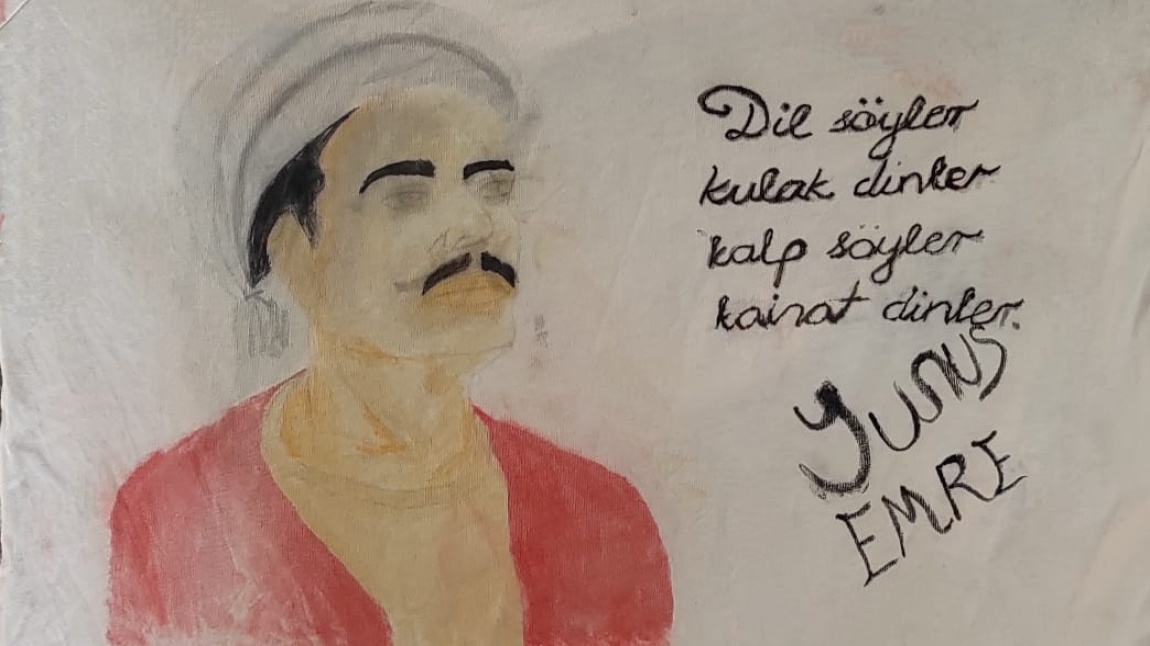 Dil söyler
kulak dinler
kalp söyler
kainat dinler.
Yunus
EMRE